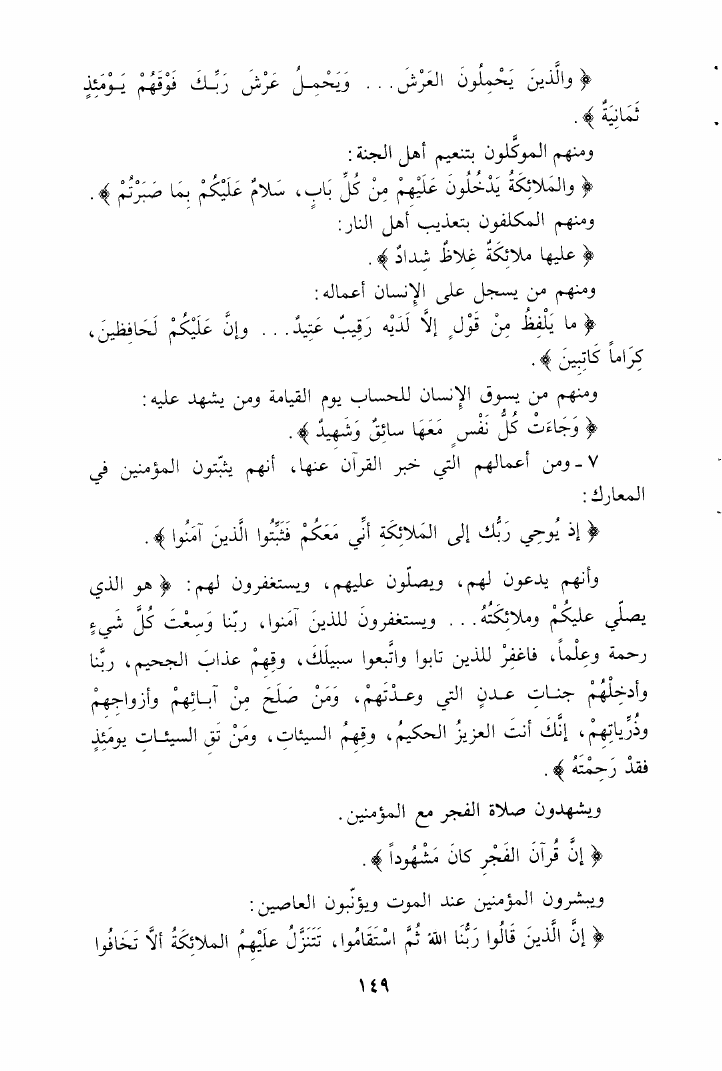 ﴿ والَّذينَ يَحْمِلُونَ العَرْشَ... وَيَحْمِلُ عَرْشَ رَبِّكَ فَوْقَهُمْ يَوْمَئِذٍ
ثَمَانِيَةٌ ﴾.
ومنهم الموكَّلون بتنعيم أهل الجنة:
﴿ والمَلائِكَةُ يَدْخُلُونَ عَلَيْهِمْ مِنْ كُلِّ بَابٍ، سَلامٌ عَلَيْكُمْ بِمَا صَبَرْتُمْ ﴾.
ومنهم المكلفون بتعذيب أهل النار:
﴿ عليها ملائِكَةٌ غِلاظٌ شِدادٌ ﴾.
ومنهم من يسجل على الإنسان أعماله:
﴿ ما يَلْفِظُ مِنْ قَوْلٍ إلَّا لَدَيْه رَقِيبٌ عَتِيدٌ... وإنَّ عَلَيْكُمْ لَحَافِظينَ،
كِرَاماً كَاتِبِينَ ﴾.
ومنهم من يسوق الإنسان للحساب يوم القيامة ومن يشهد عليه:
﴿ وَجَاءَتْ كُلُّ نَفْسٍ مَعَهَا سائِقٌ وَشَهِيدٌ ﴾.
٧ ـ ومن أعمالهم التي خبر القرآن عنها، أنهم يثبّتون المؤمنين في
المعارك:
﴿ إذ يُوحِي رَبُّك إلى المَلائِكَةِ أنِّي مَعَكُمْ فَثَبِّتُوا الَّذينَ آمَنُوا ﴾.
وأنهم يدعون لهم، ويصلّون عليهم، ويستغفرون لهم: ﴿ هو الذي
يصلّي عليكُمْ وملائِكَتُهُ... ويستغفرونَ للذينَ آمَنوا، ربّنا وَسِعْتَ كُلَّ شَيءٍ
رحمة وعِلْماً، فاغفِرْ للذين تابوا واتَّبعوا سبيلَكَ، وقِهِمْ عذابَ الجحيم، ربَّنا
وأدخِلْهُمْ جناتِ عدنٍ التي وعدْتَهمْ، وَمَنْ صَلَحَ مِنْ آبائِهمْ وأزواجِهِمْ
وذُرِّياتِهِمْ، إنَّكَ أنتَ العزيزُ الحكيمُ، وقِهِمُ السيئاتِ، ومَنْ تَقِ السيئاتِ يومَئِذٍ
فقدْ رَحِمْتَهُ ﴾.
ويشهدون صلاة الفجر مع المؤمنين.
﴿ إنَّ قُرآنَ الفَجْرِ كانَ مَشْهُوداً ﴾.
ويبشرون المؤمنين عند الموت ويؤنّبون العاصين:
﴿ إنَّ الَّذينَ قَالُوا رَبُّنَا اللهُ ثُمَّ اسْتَقَامُوا، تَتَنَزَّلُ عَلَيْهِمُ الملائِكَةُ ألَّا تَخَافُوا
١٤٩